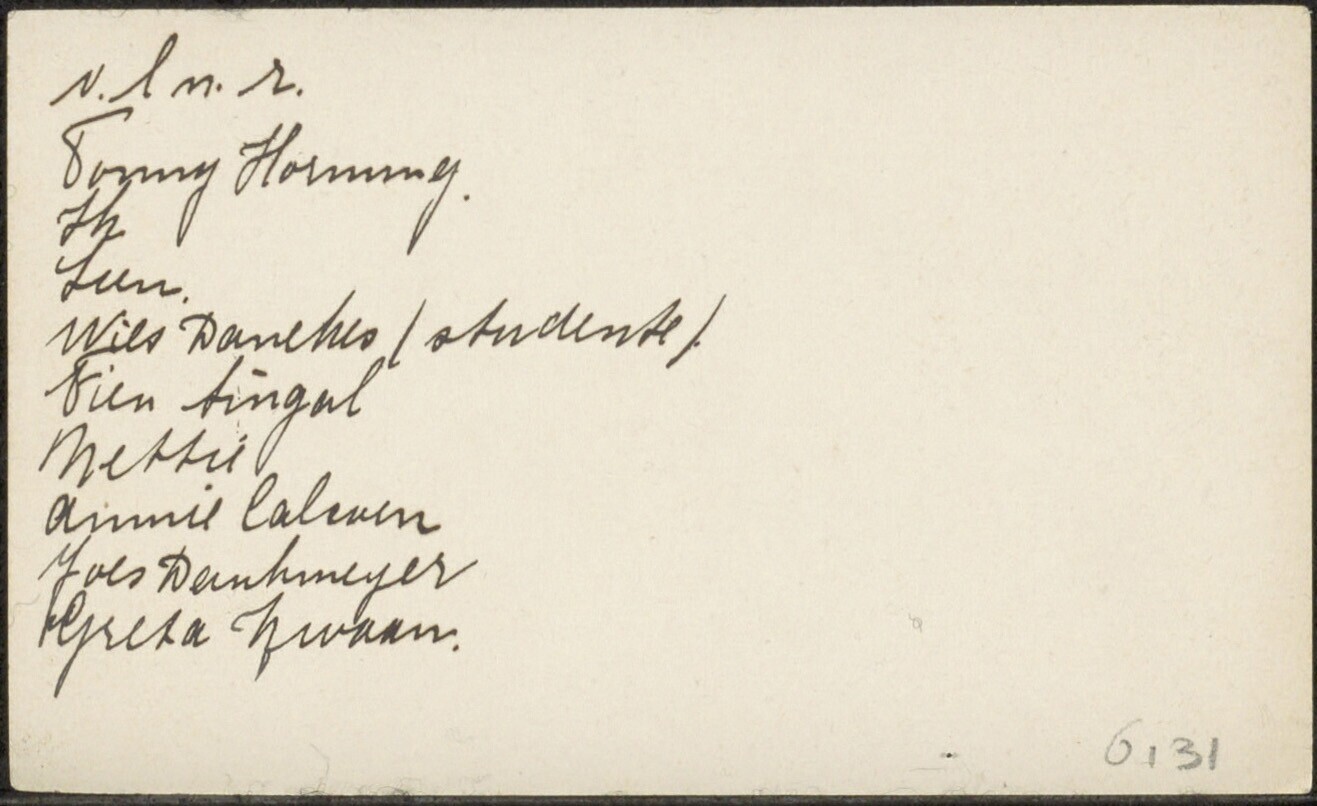 v. l n. r.
Tonny Hornung.
Ik
Lien.
Wies Danekes (studente).
Tien Singal
Mettie
Annie Caleven
Joes Dankmeyer
Greta Zwaan.
6131